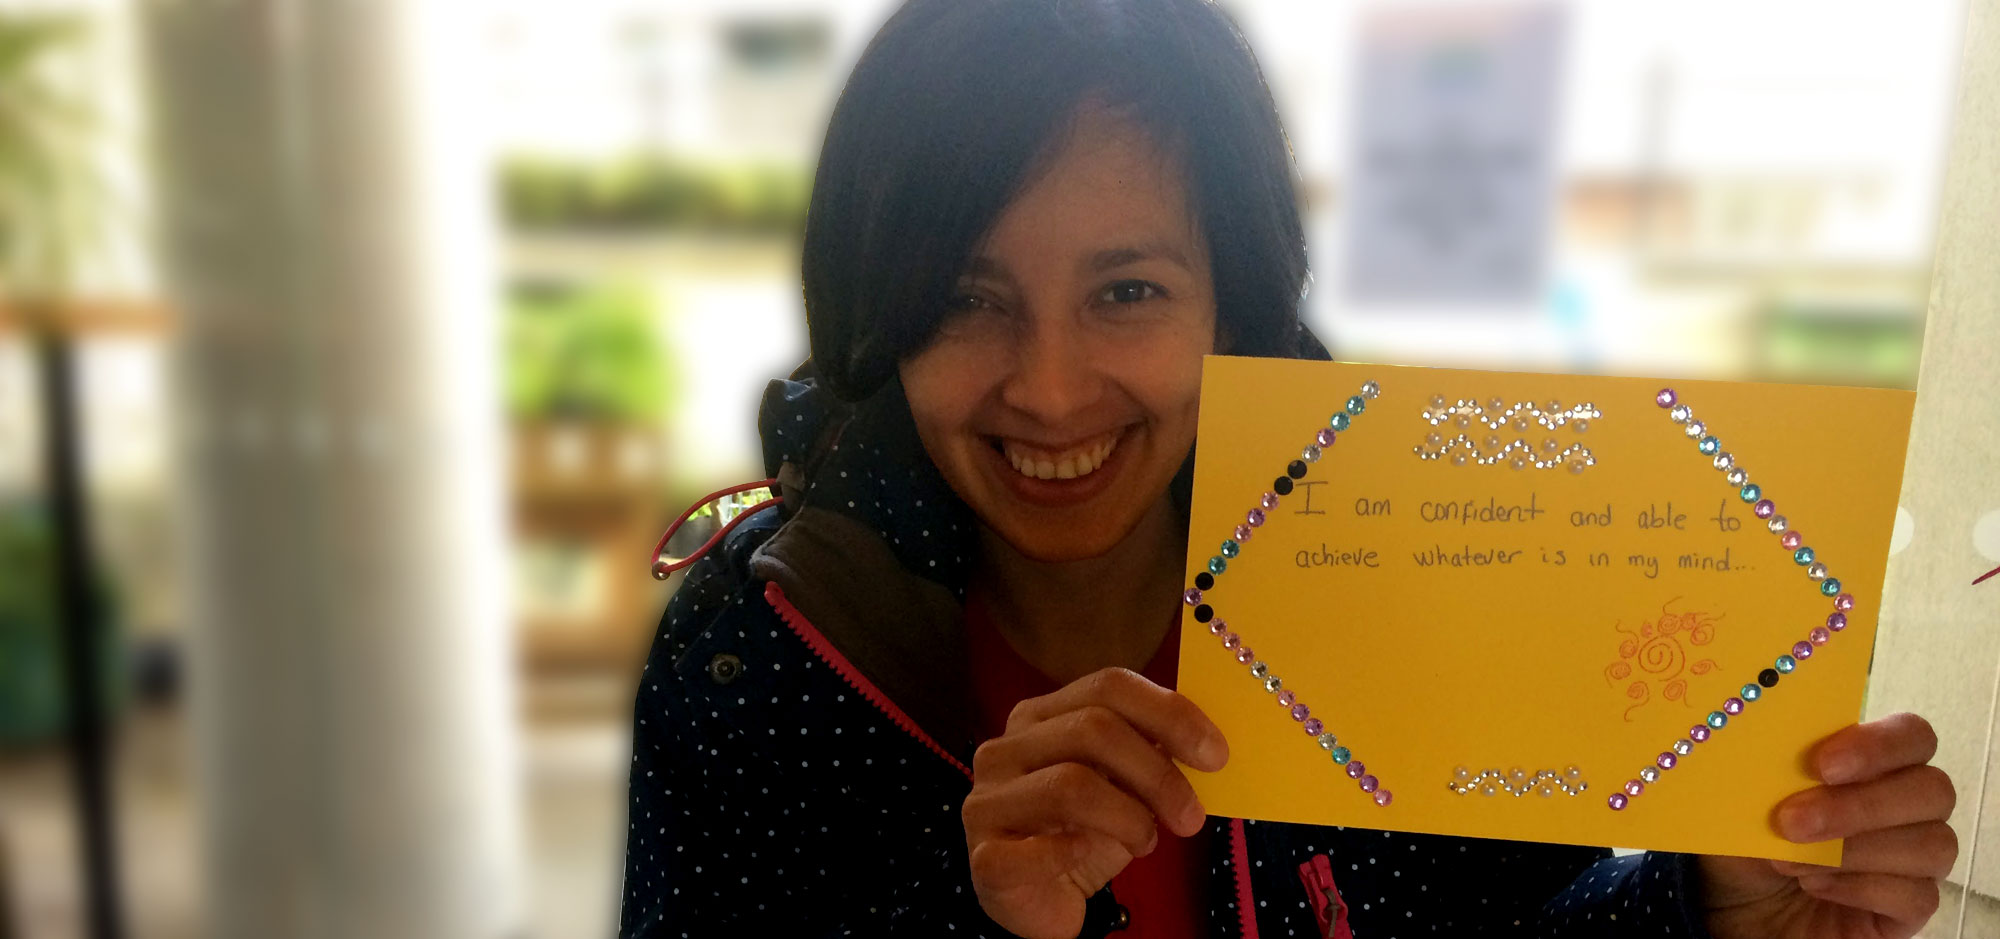 I am confident and able to
achieve whatever is in my mind...